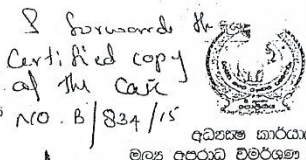 I forward the
Certified copy
of the Case
NO. B/834/15
අධ්‍යක්ෂ කාර්යා
මූල්‍ය අපරාධ විමර්ශණ